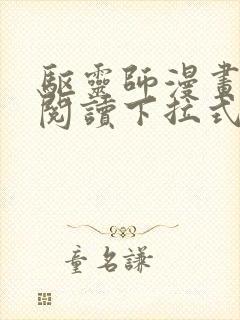 驅靈師漫畫
閱讀下拉式
童名謙